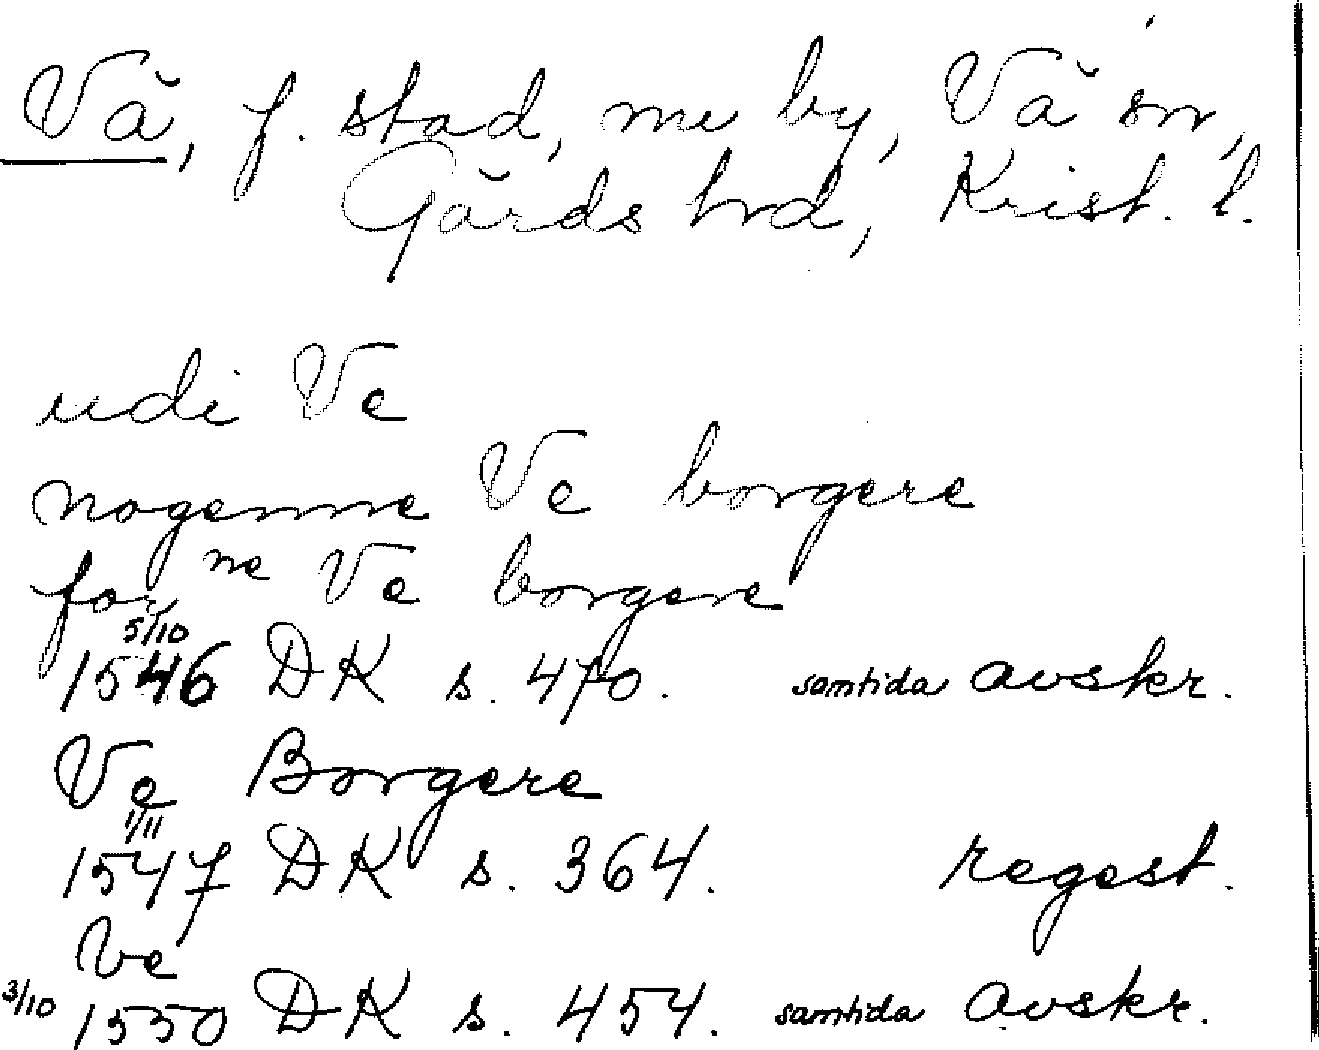 Vă, f. stad, nu by, Vă sn,
Gărds hrd, Krist. l.
udi Ve
nogenne Ve borgere
for ne Ve borgere
5/10
1546 DK s. 470. samtida avskr.
Ve Borgere
1/11
1547 DK s. 364. regest.
Ve
3/10 1550 DK s. 454. samtida avskr.